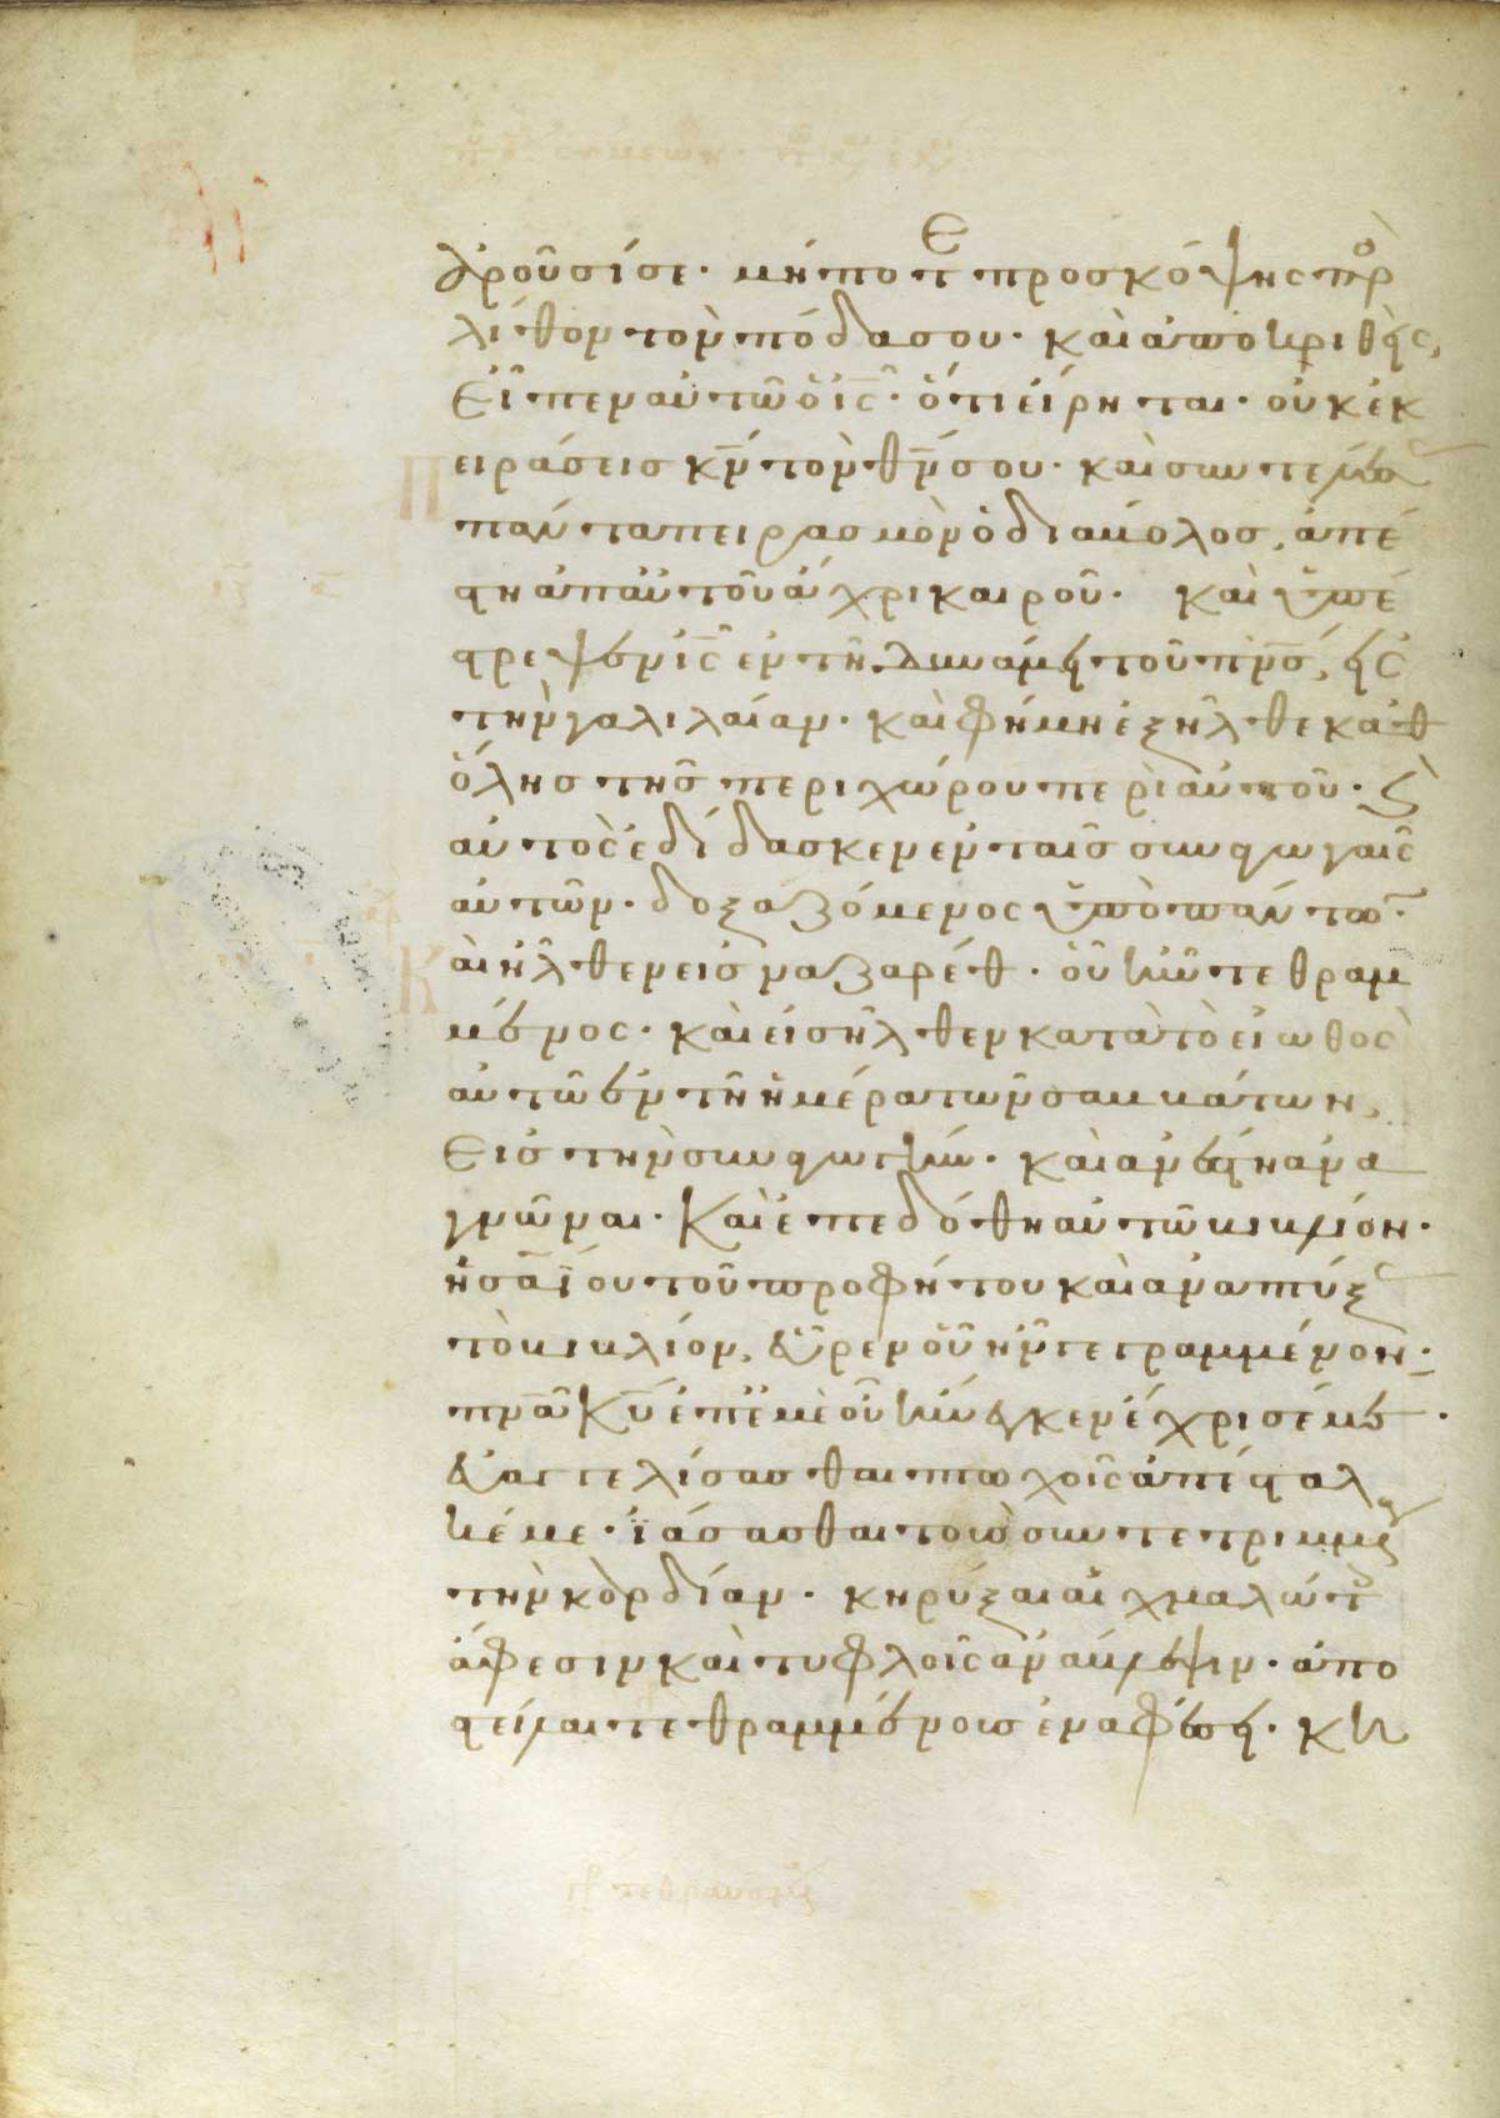 ἀροῦσί σε· μήποτε προσκόψης πρὸ
λίθον τὸν πόδα σου· καὶ ἀποκριθεὶς,
εἶπεν αὐτῶ ὁ ις· ὅτι εἴρηται· οὐκ ἐκ
πειράσεις κν τὸν θν σου· καὶ συντελέσα
πάντα πειρασμὸν ὁ διάβολος, ἀπέ
στη ἀπ αὐτοῦ ἄχρι καιροῦ· καὶ ὑπέ
στρεψεν ὁ ις ἐν τῆ δυνάμει τοῦ πνσ, εἰς
τὴν γαλιλαίαν· καὶ φήμη ἐξῆλθε καθ
ὅλης τῆς περιχώρου περὶ αὐτοῦ· ϗ
αὐτὸς ἐδίδασκεν ἐν ταῖς συναγωγαῖς
αὐτῶν· δοξαζόμενος ὑπὸ πάντω·
Καὶ ἦλθεν εἰς ναζαρέθ· οὗ ἦν τεθραμ
μένος· καὶ εἰσῆλθεν κατὰ τὸ εἰωθὸς
αὐτῶ ἐν τῆ ἡμέρα τῶν σαββάτων,
εἰς τὴν συναγωγήν· καὶ ἀνέστη ἀνα
γνῶναι· Καὶ ἐπεδόθη αὐτῶ βιβλίον·
ἡσαΐου τοῦ προφήτου καὶ ἀναπτύξ
τὸ βιβλίον, εὗρεν οὗ ἦν γεγραμμένον·
πνα κυ ἐπ ἐμὲ οὗ εἵνεκεν ἔχρισέ με·
εὐαγγελίσασθαι πτωχοῖς ἀπέσταλ
κέ με· ἰάσασθαι τοὺς συντετριμμέ
τὴν καρδίαν· κηρύξαι αἰχμαλώτ
ἄφεσιν καὶ τυφλοῖς ἀνάβλεψιν· ἀπο
στεῖλαι τεθραμμένους ἐν ἀφέσει· κη